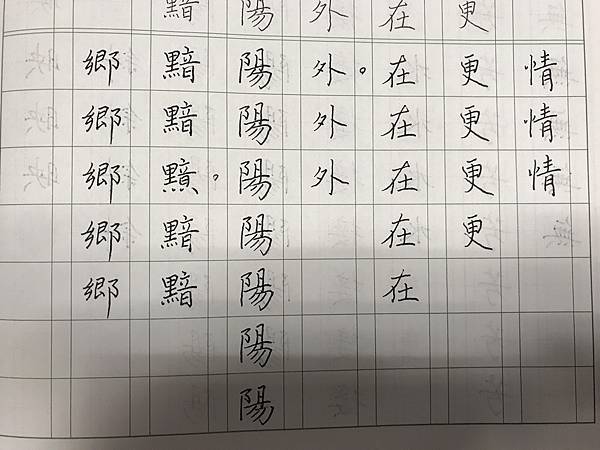 情情情
更更更更更
在在在在在在
外外。外外
陽陽陽陽陽陽陽陽
黯黯黯黯。黯黯
鄉鄉鄉鄉鄉